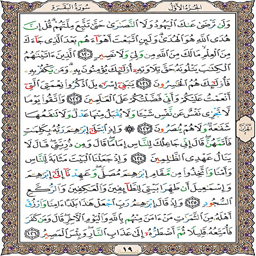 الجزء الأول سورة البقرة
ولن ترضى عنك اليهود ولا النصارى حتى تتبع ملتهم قل إن
هدى الله هو الهدى ولئن اتبعت أهواءهم بعد الذي جاءك
من العلم ما لك من الله من ولي ولا نصير الذين آتيناهم
الكتاب يتلونه حق تلاوته أولئك يؤمنون به ومن يكفر به
فأولئك هم الخاسرون يا بني إسرائيل اذكروا نعمتي التي
أنعمت عليكم وأني فضلتكم على العالمين واتقوا يوما
لا تجزي نفس عن نفس شيئا ولا يقبل منها عدل ولا تنفعها
شفاعة ولا هم ينصرون وإذ ابتلى إبراهيم ربه بكلمات
فأتمهن قال إني جاعلك للناس إماما قال ومن ذريتي قال لا
ينال عهدي الظالمين وإذ جعلنا البيت مثابة للناس
وأمنا واتخذوا من مقام إبراهيم مصلى وعهدنا إلى إبراهيم
وإسماعيل أن طهرا بيتي للطائفين والعاكفين والركع
السجود وإذ قال إبراهيم رب اجعل هذا بلدا آمنا وارزق
أهله من الثمرات من آمن منهم بالله واليوم الآخر قال ومن كفر
فأمتعه قليلا ثم أضطره إلى عذاب النار وبئس المصير
١٩